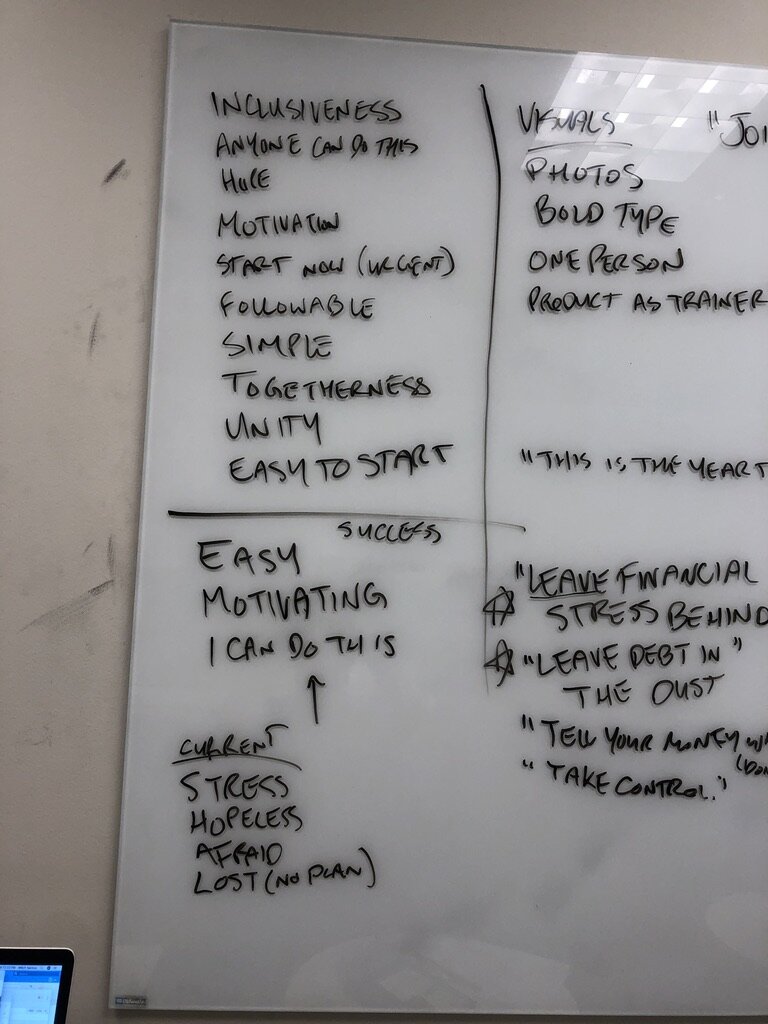 INCLUSIVENESS
ANYONE CAN DO THIS
HOPE
MOTIVATION
START NOW (URGENT)
FOLLOWABLE
SIMPLE
TOGETHERNESS
UNITY
EASY TO START
SUCCESS
EASY
MOTIVATING
I CAN DO THIS
CURRENT
STRESS
HOPELESS
AFRAID
LOST (NO PLAN)
VISUALS
"JOI
PHOTOS
BOLD TYPE
ONE PERSON
PRODUCT AS TRAINER
"THIS IS THE YEAR
"LEAVE FINANCIAL
STRESS BEHIND
"LEAVE DEBT IN"
THE DUST
"TELL YOUR MONEY
"TAKE CONTROL."